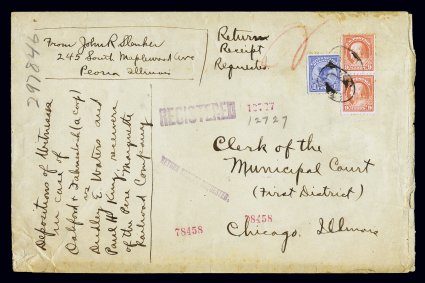 From John R Slonker
245 South Maplewood Ave
Peoria Illinois
297846
Return
Receipt
Requested
REGISTERED
12727
12727
Depositions of Witnesses
in case of
Oakford & Fahnestock (a corp)
vs
Dudley E. Waters and
Paul H King receivers
of the Pere Marquette
Railroad Company
Clerk of the
Municipal Court
(First District)
Chicago, Illinois
RETURN RECEIPT
78458
78458